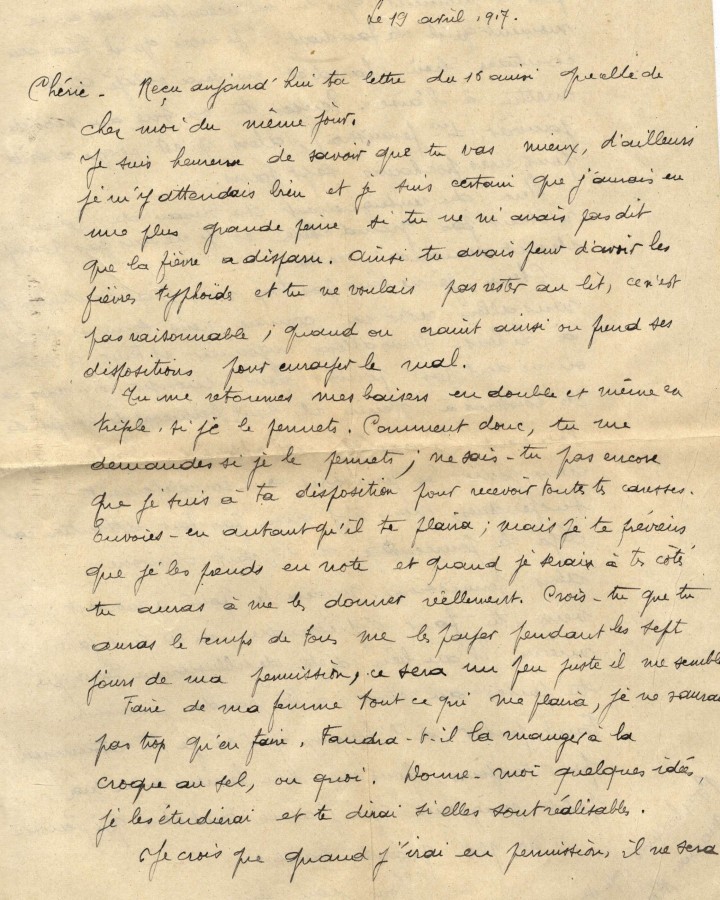 Le 19 avril 1917.
Chérie - Reçu aujourd'hui ta lettre du 16 ainsi que celle de
chez moi du même jour.
Je suis heureux de savoir que tu vas mieux, d'ailleurs
je m'y attendais bien et je suis certain que j'aurais eu
une plus grande peine si tu ne m'avais pas dit
que la fièvre a disparu. Ainsi tu avais peur d'avoir les
fièvres typhoïde et tu ne voulais pas rester au lit, ce n'est
pas raisonnable ; quand on craint ainsi on prend ses
dispositions pour enrayer le mal.
Tu me retournes mes baisers en double et même en
triple, si je le permets. Comment donc, tu me
demandes si je le permets ; ne sais-tu pas encore
que je suis à ta disposition pour recevoir toutes tes caresses.
Envoies-en autant qu'il te plaira ; mais je te préviens
que je les prends en note et quand je serais à tes côtés
tu auras à me les donner réellement. Crois-tu que tu
auras le temps de tous me les payer pendant les sept
jours de ma permission, ce sera un peu juste il me semble
Faire de ma femme tout ce qui me plaira, je ne saurai
pas trop qu'en faire. Faudra-t-il la manger à la
croque au sel, ou quoi. Donne-moi quelques idées,
je les étudierai et te dirai si elles sont réalisables.
Je crois que quand j'irai en permission, il ne sera